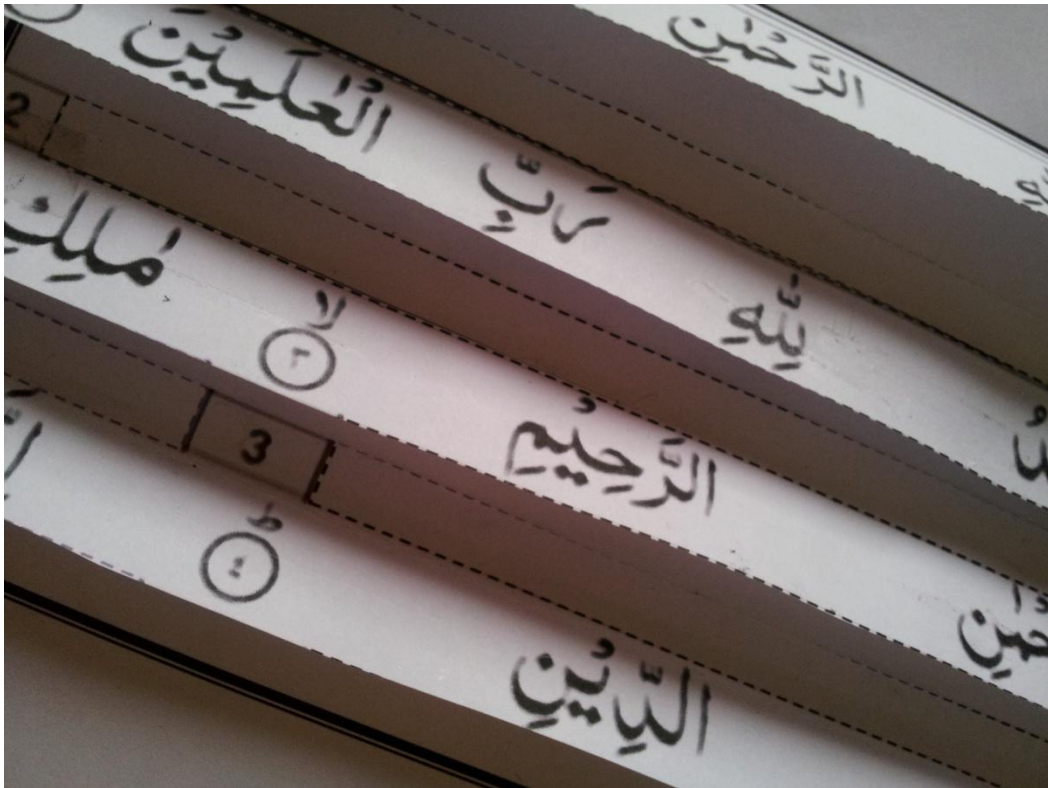 الرَّحْمٰنِ
لِلّٰهِ رَبِّ الْعٰلَمِيْنَ
2
الرَّحِيْمِ ۙ ٣ مٰلِكِ
3
الدِّيْنِ ؕ ٤